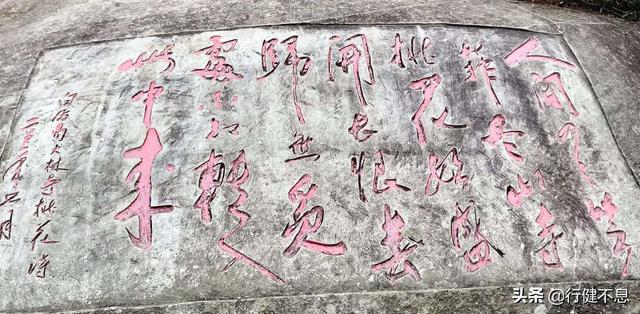 人间四月芳
菲尽山寺
桃花始盛
开长恨春
归無觅
處不知轉入
此中来
白居易大林寺桃花诗
二年月
头条 @行健不息